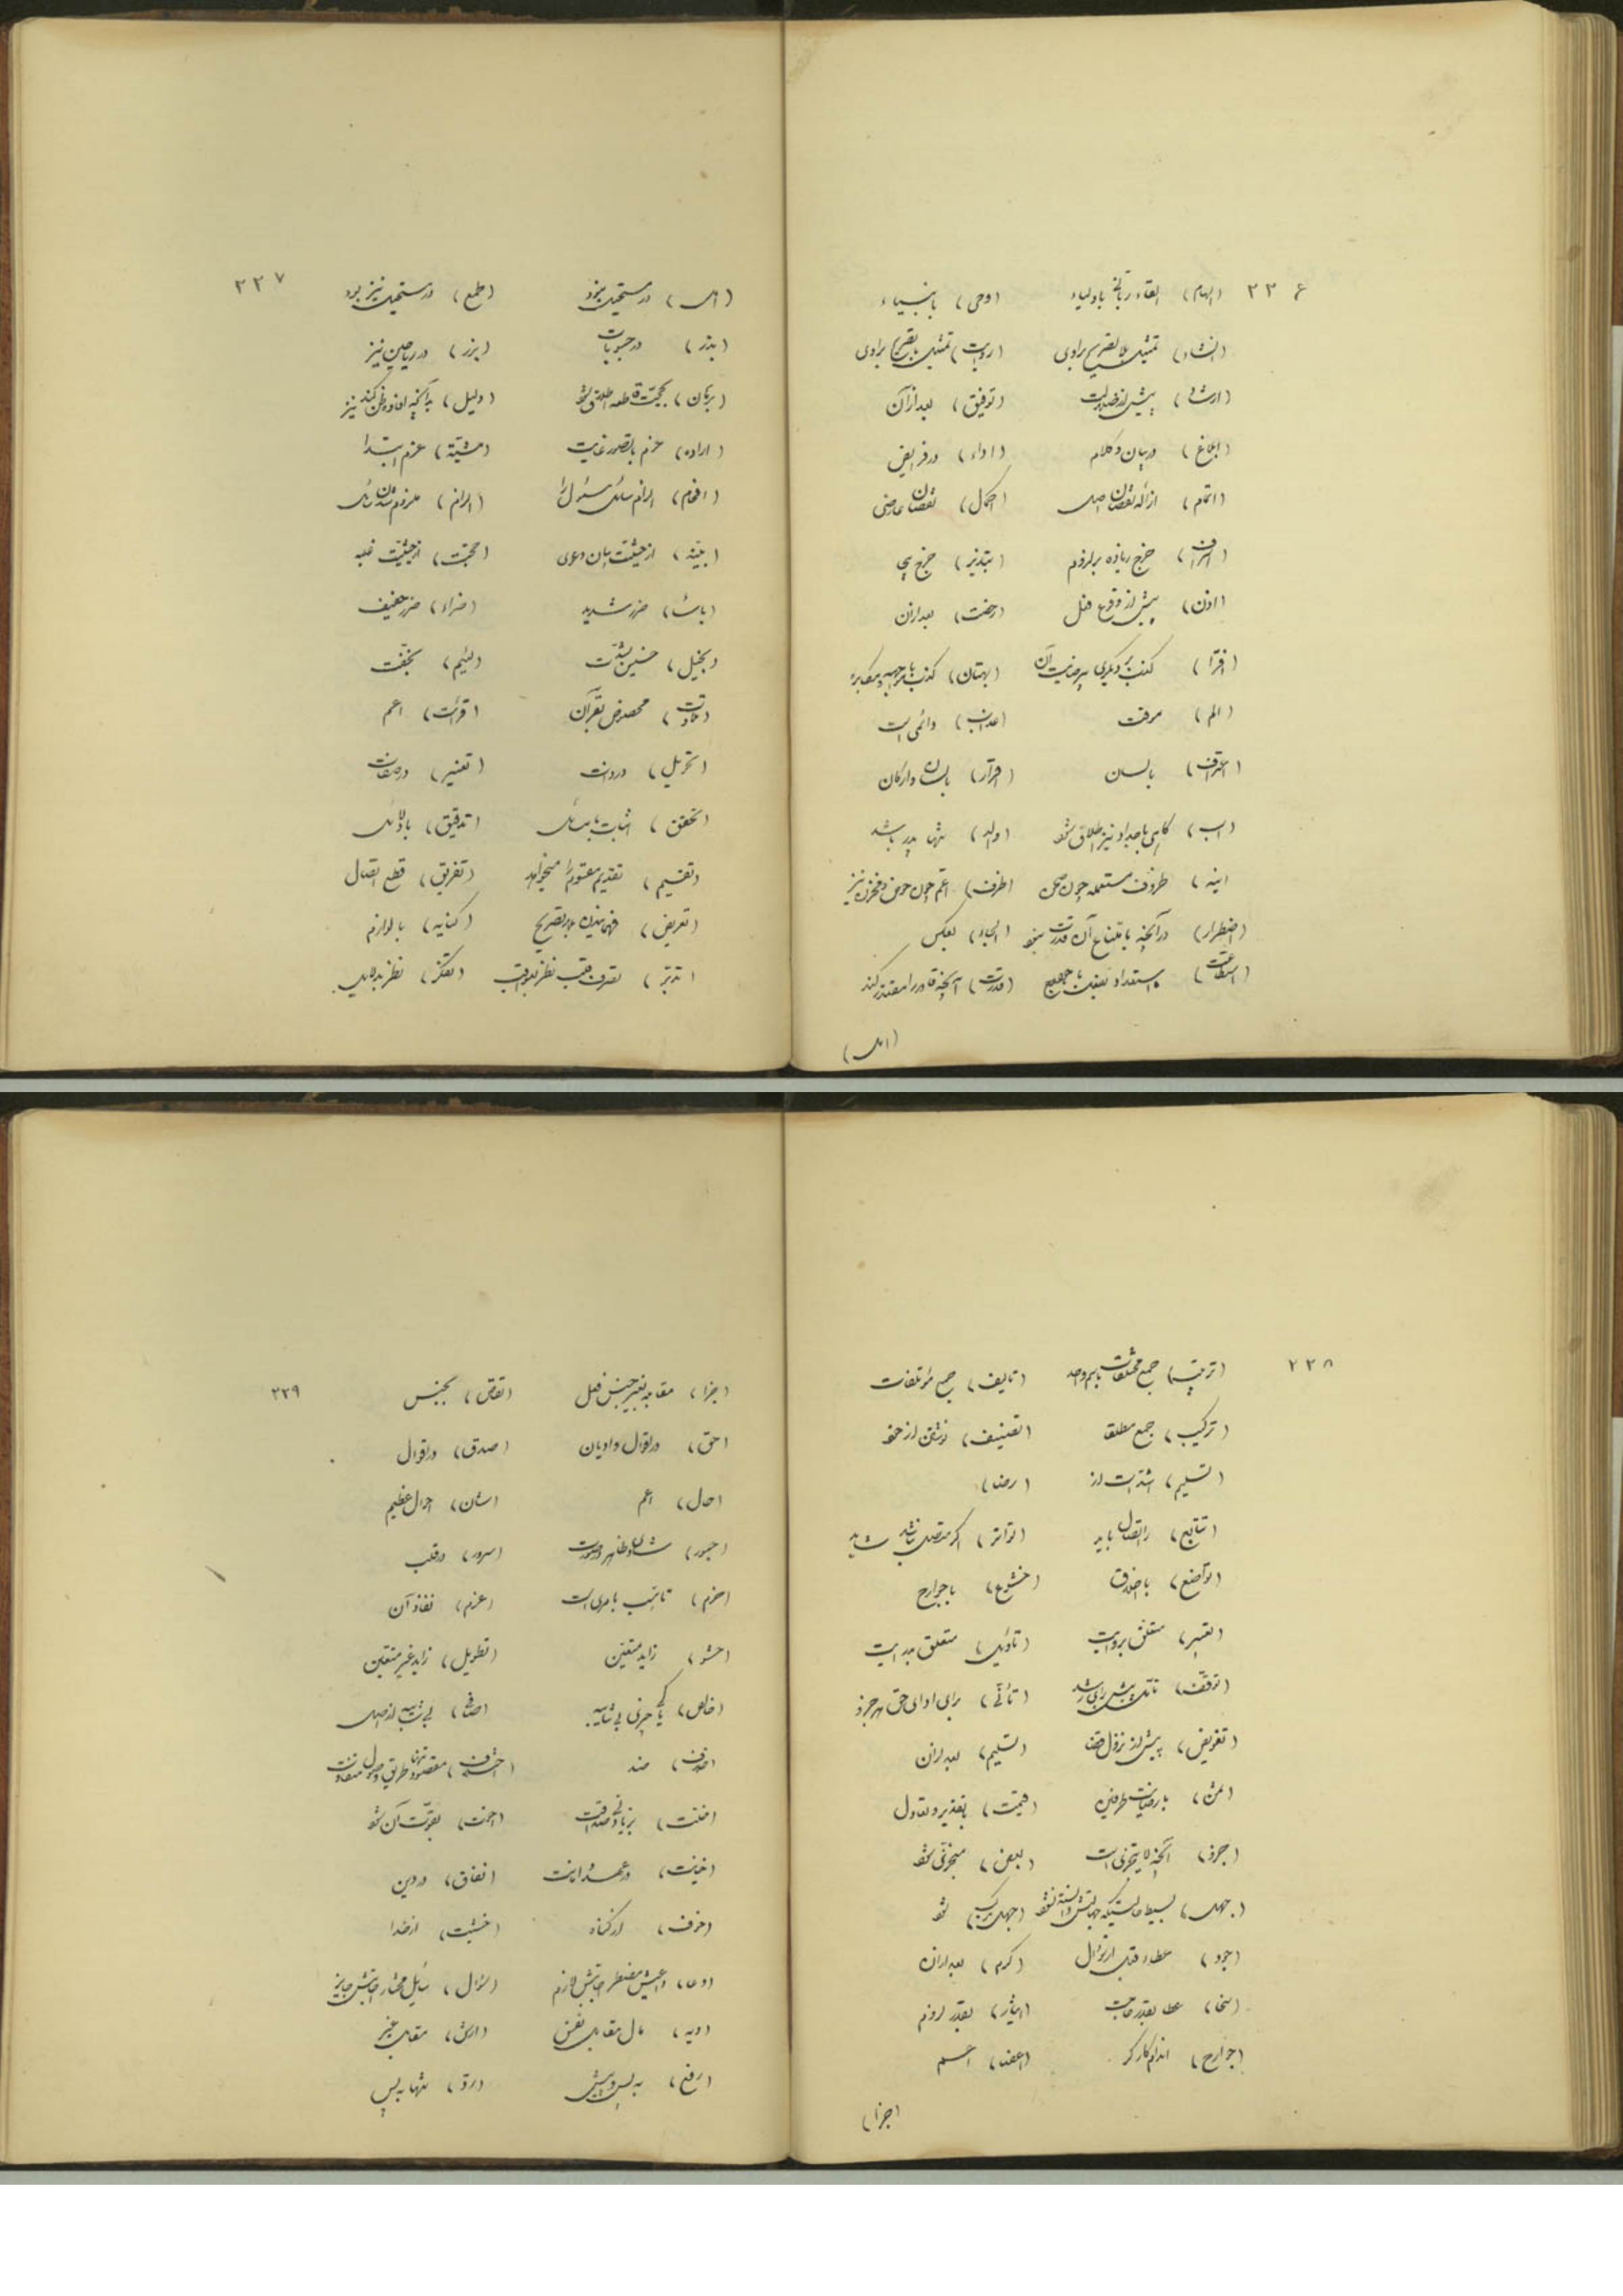 ۲۳۶
(الهام) القاء ربانی باولیاء (وحی) بانبیاء
(انشاد) تمثیل بلا تصریح براوی (روایت) تمثیل با تصریح براوی
(ارشاد) پیش از ضلالت (توفیق) بعد از آن
(ابلاغ) در بیان و کلام (اداء) در فرایض
(اتمام) ازاله نقصان اصل (اکمال) نقصان عارضی
(اسراف) خرج زیاده بر لزوم (تبذیر) خرج بی
(اذن) پیش از وقوع فعل (رخصت) بعد از آن
(افترا) کذب بر دیگری آن (بهتان) کذب
(الم) موقت (عذاب) دائمی است
(اعتراف) بلسان (اقرار) بلسان و ارکان
(اب) گاهی باجداد نیز اطلاق شود (والد) تنها پدر باشد
ظروف مستعمله چون صحن (ظرف) اعم چون حوض و مخزن نیز
(اضطرار) در آنچه بامتناع آن قدرت نبود (الجاء) بعکس
(استطاعت) استعداد (قدرت) آنچه قادر را مقتدر کند
(امل)
۲۳۷
(امل) در مستحیل نبود (طمع) در مستحیل نیز بود
(بذر) در حبوبات (بزر) در ریاحین نیز
(برهان) بحجت قاطعه اطلاق شود (دلیل) بدانچه افاده ظن کند نیز
(اراده) عزم با تصور غایت (مشیة) عزم ابتدا
(افحام) الزام سائل مسئول را (الزام) ملزم شدن سائل
(بینه) از حیثیت بیان دعوی (حجت) از حیثیت غلبه
(باساء) ضرر شدید (ضراء) ضرر خفیف
(بخیل) خسیس بشدت (لئیم) بخفت
(تلاوت) مخصوص بقرآن (قرائت) اعم
(تحویل) در ذات (تغییر) در صفات
(تحقیق) اثبات بمسائل (تدقیق) بادلائل
(تقسیم) تقدیم مقسوم را میخواهد (تفریق) قطع اتصال
(تعریض) فهمانیدن بی تصریح (کنایه) با لوازم
(تدبر) تصرف قلب بنظر بعواقب (تفکر) نظر بدلایل
۲۳۸
(ترتیب) جمع مختلفات باسم واحد (تالیف) جمع مؤتلفات
(ترکیب) جمع مطلقا (تصنیف) نوشتن از خود
(تسلیم) اشد است از (رضا)
(تتابع) را اتصال باید (تواتر) اگر متصل نباشد شاید
(تواضع) باخلاق (خشوع) بجوارح
(تفسیر) متعلق بروایت (تاویل) متعلق بدرایت
(توقف) تامل پیش از رای (تأنی) برای ادای حق هر جزو
(تفویض) پیش از نزول قضا (تسلیم) بعد از آن
(ثمن) بارضایت طرفین (قیمت) بتقدیر و تعادل
(جزؤ) آنچه لا یتجزی است (بعض) متجزی شود
(جهل) بسیط (جهل مرکب) شود
(جود) عطاء قبل از سؤال (کرم) بعد از آن
(سخا) عطا بقدر حاجت (ایثار) بقدر لزوم
(جوارح) اندام کارگر (اعضا) اعم
(جزا)
۲۳۹
(جزا) مقابله بغیر جنس فعل (تقاص) بجنس
(حق) در اقوال و ادیان (صدق) در اقوال
(حال) اعم (شان) احوال عظیم
(حبور) شادی ظاهر در صورت (سرور) در قلب
(حزم) تاهب بامری است (عزم) نفاذ آن
(حشو) زاید متعین (تطویل) زاید غیر متعین
(خالص) پاکی چیزی بی شایبه (صافی) بی شایبه از اصل
(خلاف) ضد (اختلاف) مقصود تنها طریق وصول متفاوت
(خلت) بزیادتی صداقت (اخوت) بقوت آن شود
(خیانت) در عهد و امانت (نفاق) در دین
(خوف) از گناه (خشیت) از خدا
(دعا) داعیش مضطر اجابتش لازم (سؤال) سایل مختار اجابتش جایز
(دیه) مال مقابل نفس (ارش) مقابل غیر
(رفع) به پس و پیش (رد) تنها به پس